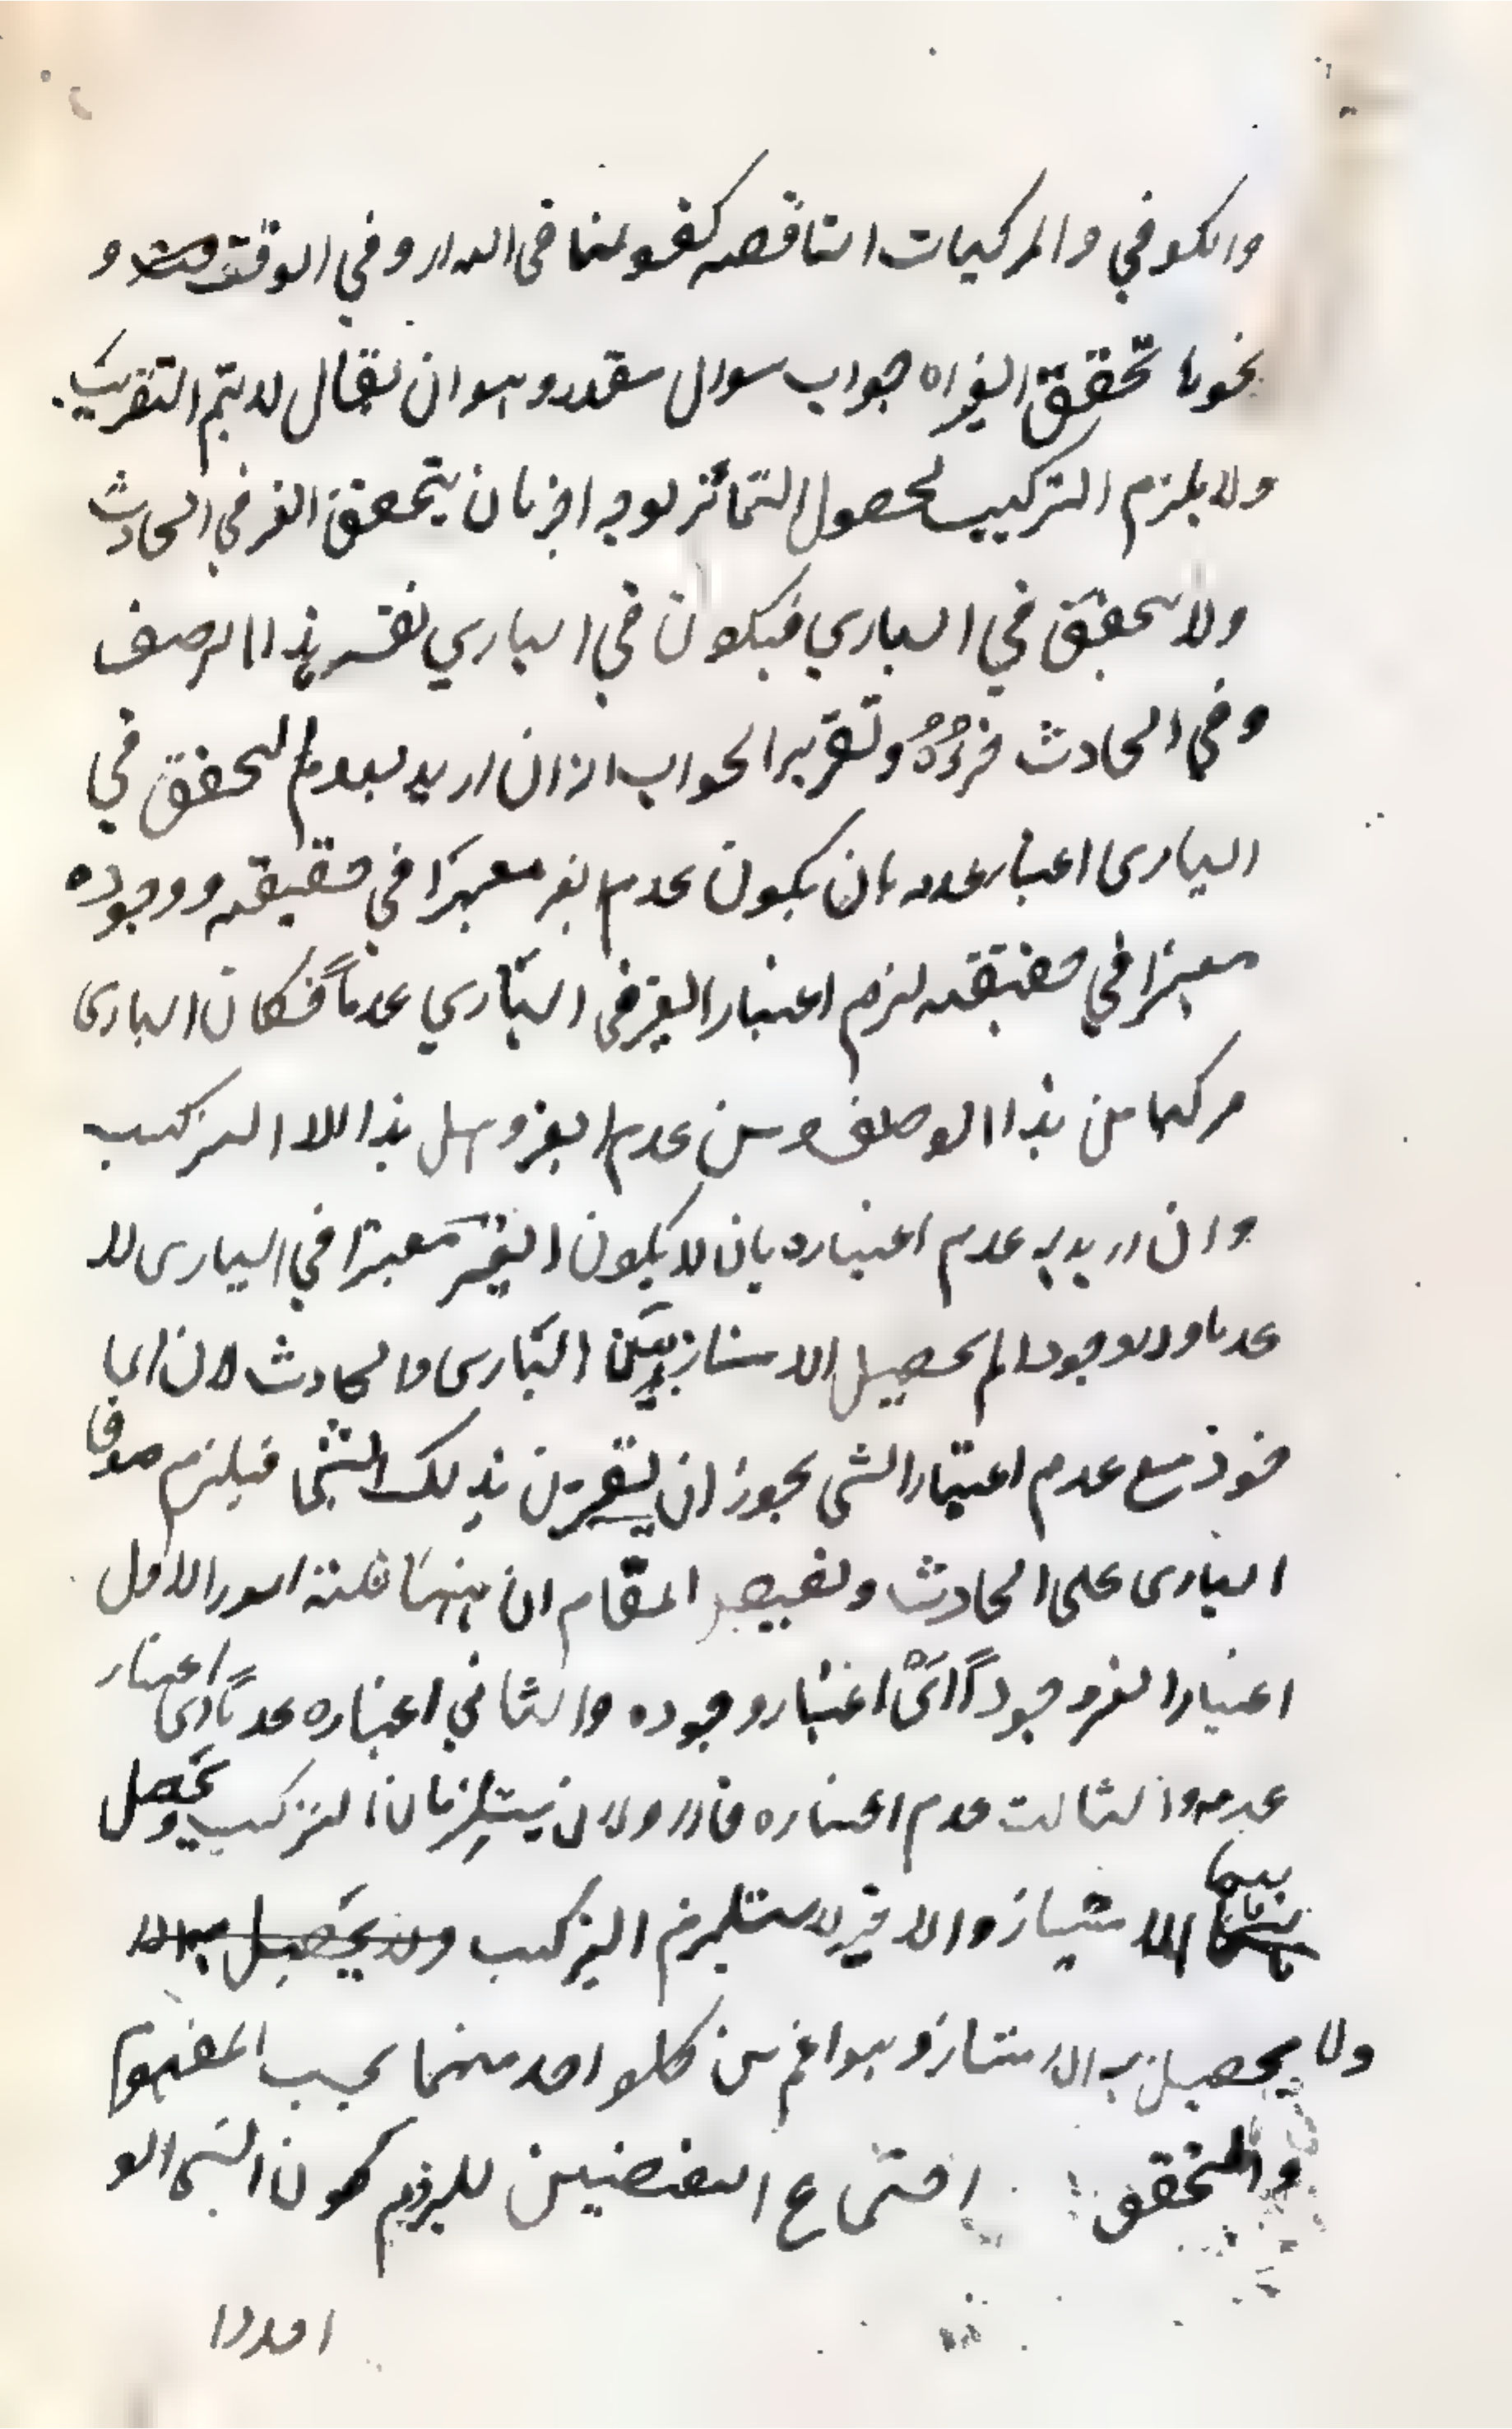 والكوفي والمركبات الناقصه كقولنا في الدار وفي الوقت و
نحوها تحقق الغير اه جواب سوال مقدر وهو ان يقال لا يتم التقريب
ولا يلزم التركيب لحصول التمائز لوجه اخر بان يتحقق الغير في الحادث
ولا يتحقق في الباري فيكون في الباري نفس هذا الوصف
وفي الحادث غيره وتقرير الجواب انه ان اريد بعدم التحقق في
الباري اعتبار عدمه بان يكون عدم الغير معتبرا في حقيقته ووجوده
معتبرا في حقيقته لزم اعتبار الغير في الباري عدما فكان الباري
مركبا من هذا الوصف ومن عدم الغير وهل هذا الا التركيب
وان اريد به عدم اعتباره بان لا يكون الغير معتبرا في الباري لا
عدما ولا وجودا لم يحصل الامتياز بين الباري والحادث لان الما
خوذ مع عدم اعتبار الشي يجوز ان يقترن بذلك الشي فيلزم صدق
الباري على الحادث وتفصيل المقام ان ههنا ثلثة امور الاول
اعتبار الغير وجودا اي اعتبار وجوده والثاني اعتباره عدما اي اعتبار
عدمه والثالث عدم اعتباره فالاولان يستلزمان التركيب ويحصل
بهما الامتياز والاخير لا يستلزم التركيب
ولا يحصل به الامتياز وهو اعم من كل واحد منهما بحسب المفهوم
والتحقق اجتماع النقضين للزوم كون الشي الو
احد دا